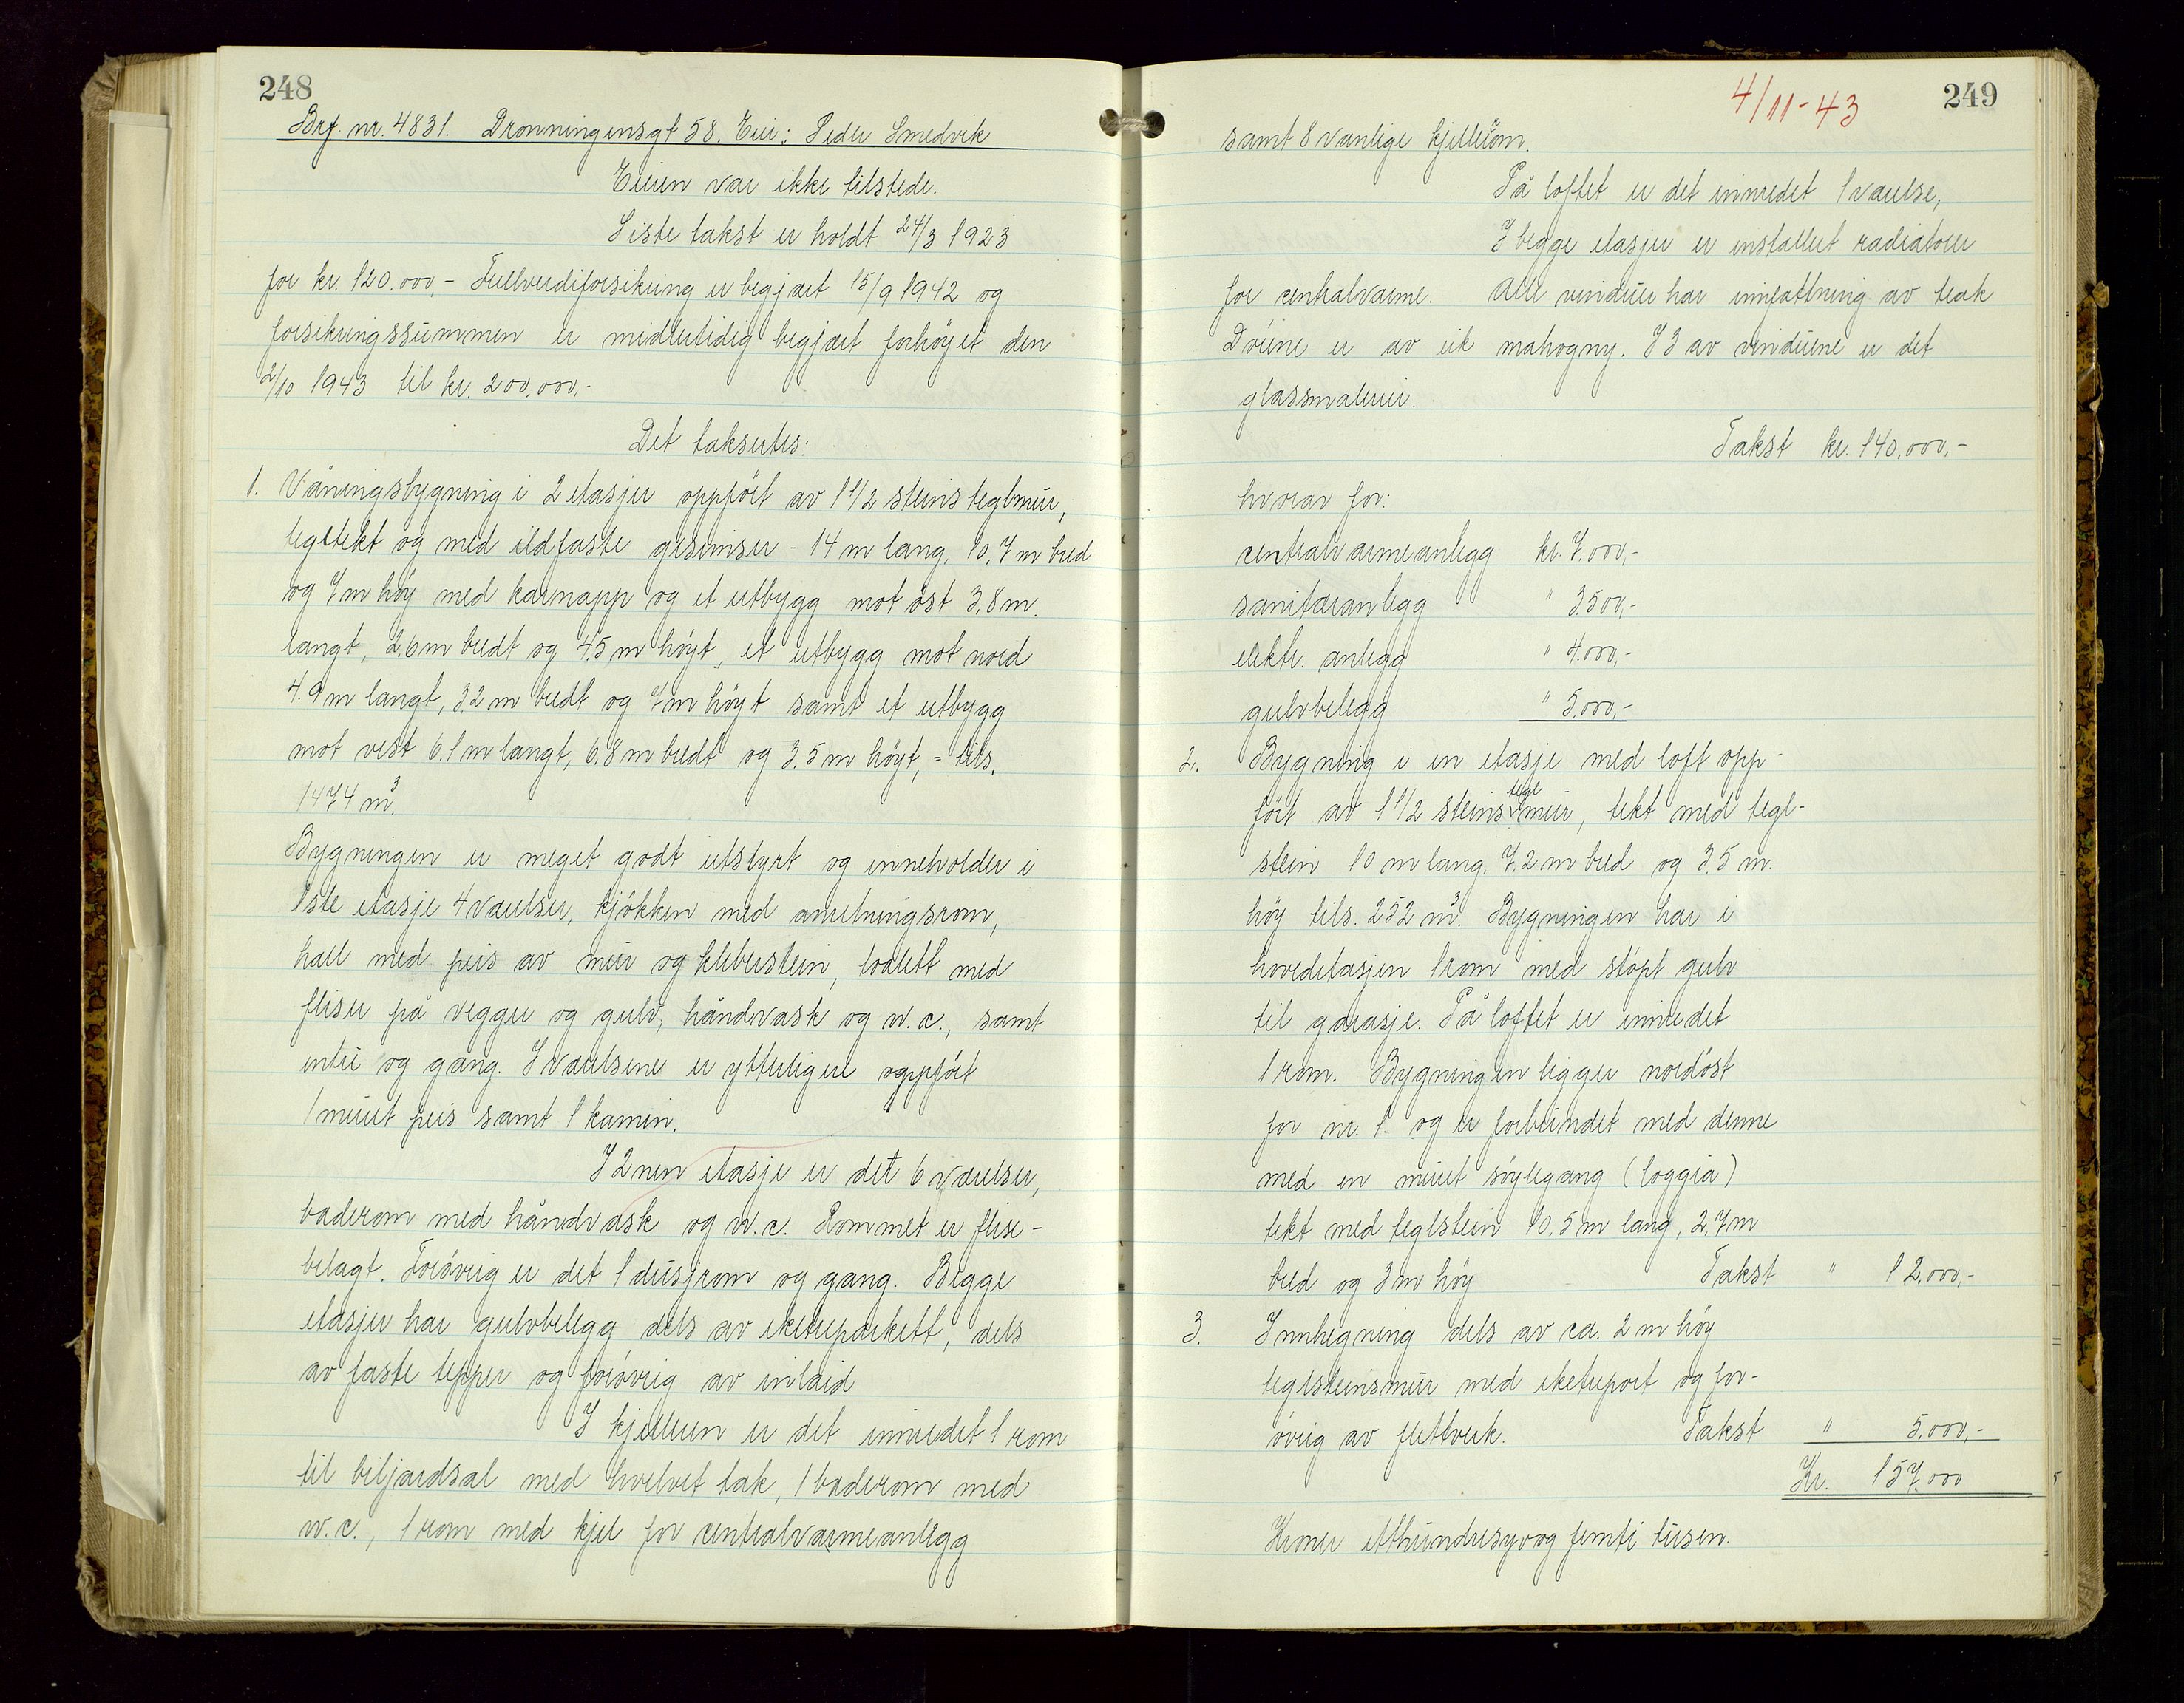 248
Brf. nr. 4831. Dronningensgt 58. Eier: Peder Smedvik
Eieren var ikke tilstede.
Siste takst er holdt 24/3 1923
for kr. 120.000,- Fullverdiforsikring er begjært 15/9 1942 og
forsikringssummen er midlertidig begjært forhöyet den
2/10 1943 til kr. 200.000,-
Det takseres:
1. Våningsbygning i 2 etasjer oppfört av 1 1/2 steins teglmur,
tegltekt og med ildfaste gesimser - 14 m lang, 10,7 m bred
og 7 m höy med karnapp og et utbygg mot öst 3,8 m.
langt, 2,6 m bredt og 4,5 m höyt, et utbygg mot nord
4.9 m langt, 3,2 m bredt og 7 m höyt samt et utbygg
mot vest 6.1 m langt, 6,8 m bredt og 3.5 m höyt, = tils.
1474 m³.
Bygningen er meget godt utstyrt og inneholder i
1ste etasje 4 værelser, kjökken med anretningsrom,
hall med peis av mur og kleberstein, toalett med
fliser på vegger og gulv, håndvask og w.c., samt
entré og gang. I værelsene er ytterligere oppfört
1 muret peis samt 1 kamin.
I 2nen etasje er det 6 værelser,
baderom med håndvask og w.c. Rommet er flise-
belagt. Forövrig er det 1 dusjrom og gang. Begge
etasjer har gulvbelegg dels av eketreparkett, dels
av faste tepper og forövrig av inlaid
I kjelleren er det innredet 1 rom
til biljardsal med hvelvet tak, 1 baderom med
w.c., 1 rom med kjel for centralvarmeanlegg
4/11-43
249
samt 8 vanlige kjellerrom.
På loftet er det innredet 1 værelse,
I begge etasjer er installert radiatorer
for centralvarme. Alle vinduer har innfattning av teak
Dörene er av eik mahogny. I 3 av vinduene er det
glassmalerier.
Takst kr. 140.000,-
hvorav for:
centralvarmeanlegg kr. 7.000,-
sanitæranlegg " 3.500,-
elektr. anlegg " 4.000,-
gulvbelegg " 5.000,-
2. Bygning i en etasje med loft opp-
fört av 1 1/2 steins teglmur, tekt med tegl-
stein 10 m lang, 7,2 m bred og 3,5 m.
höy tils. 252 m³. Bygningen har i
hovedetasjen 1 rom med stöpt gulv
til garasje. På loftet er innredet
1 rom. Bygningen ligger nordöst
for nr. 1. og er forbundet med denne
med en muret söylegang (loggia)
tekt med teglstein 10.5 m lang, 2,7 m
bred og 3 m höy Takst " 12.000,-
3. Innhegning dels av ca. 2 m höy
teglsteinsmur med eketreport og for-
övrig av flettverk. Takst " 5.000,-
Kr. 157.000
Kroner etthundresyvogfemti tusen.